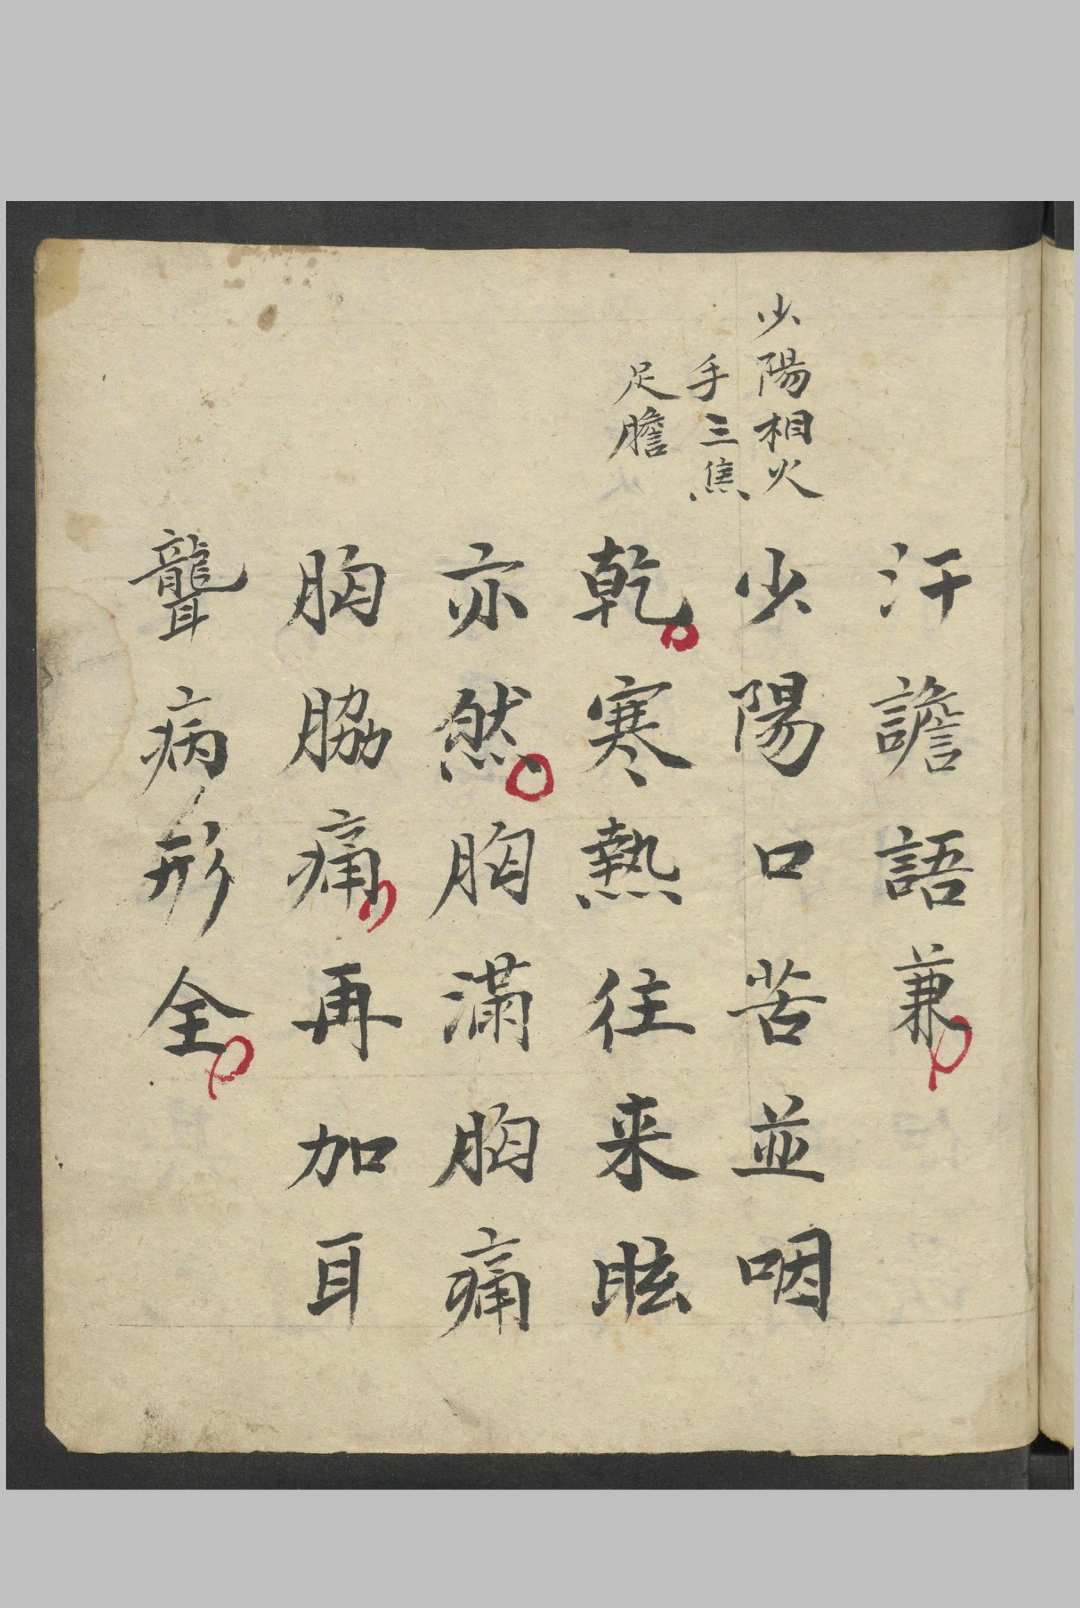 汗譫語兼
少陽相火
手三焦
足膽
少陽口苦並咽
乾寒熱往来眩
亦然胸滿胸痛
胸脇痛再加耳
聾病形全